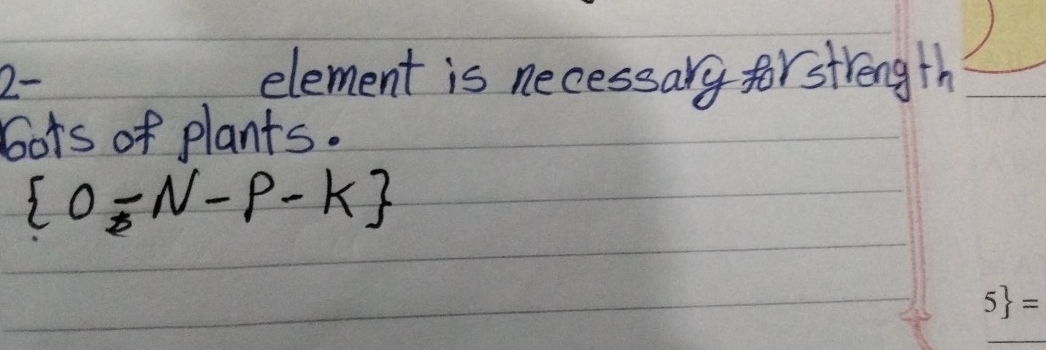 2- element is necessary for strength
oots of plants.
{ O - N - P - K }
5} =